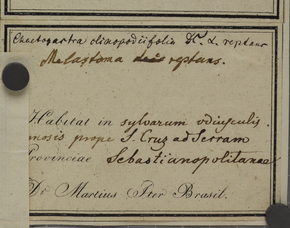 Chaetogastra clinopodiifolia DC. α. reptans
Melastoma reptans.
Habitat in sylvarum udiusculis
prope S. Cruz ad Serram
Provinciae Sebastianopolitanae
Dr. Martius Iter Brasil.